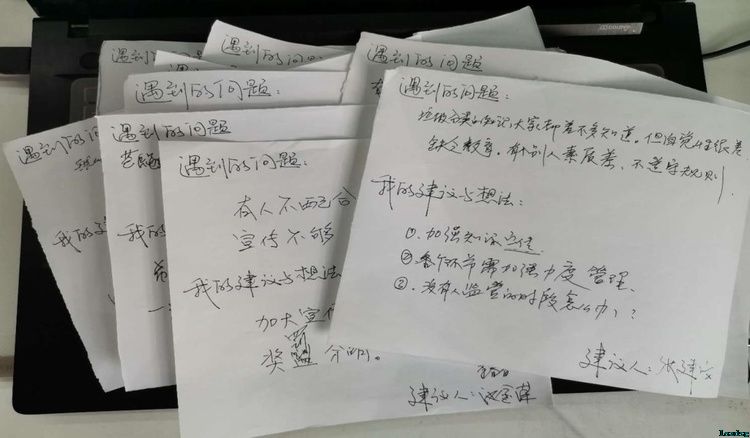 遇到的问题:
遇到的问题:
遇到的问题
遇到的问题:
遇到的问题
遇到的问题
我的建
我的
遇到的问题:
有人不配合
宣传不够
我的建议与想法
加大宣传
奖罚分明。
建议人:
遇到的问题:
垃圾分类的知识大家都差不多知道。但自觉性很差
缺乏教育。有个别人素质差、不遵守规则.
我的建议与想法:
①.加强知识宣传
③.各个环节需加强力度 管理、
②.没有人监管的时段怎么办?
建议人:张建